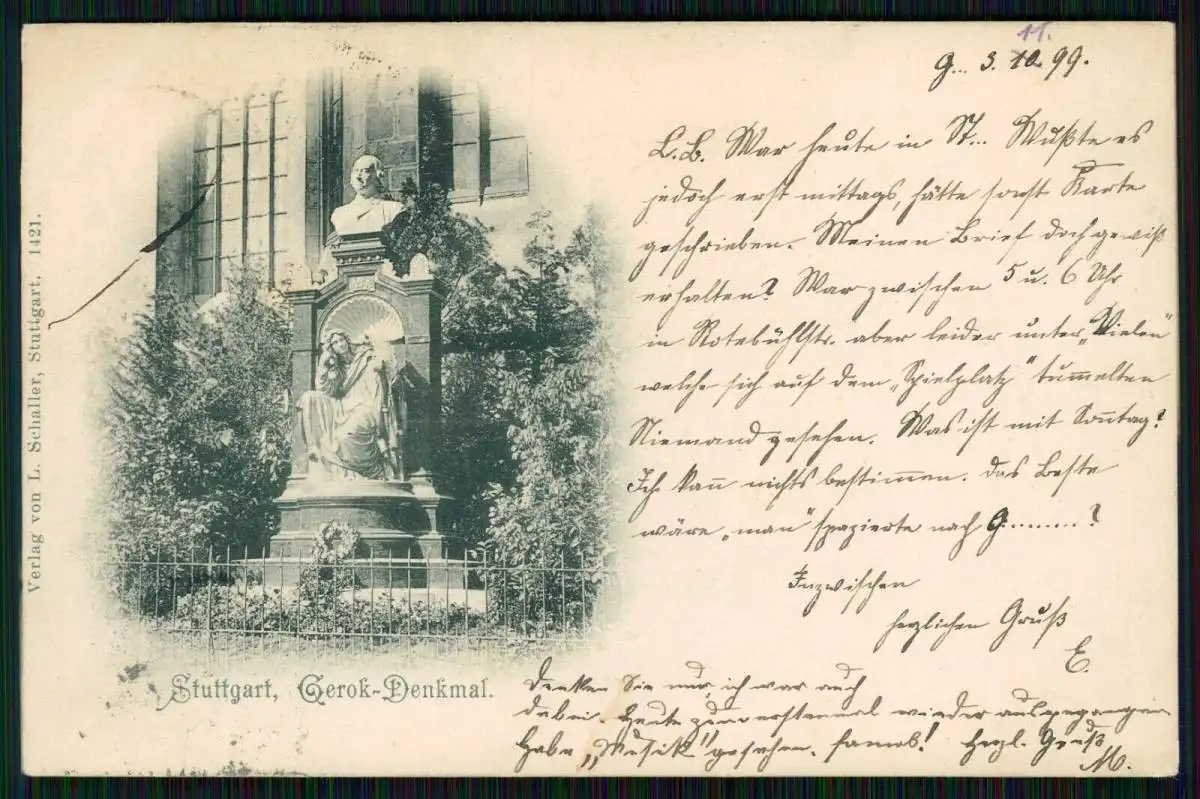 11.
G... 3. 10. 99.
L. B. War heute in St... Wußte es
jedoch erst mittags, hätte sonst Karte
geschrieben. Meinen Brief doch gewiß
erhalten? War zwischen 5 u. 6 Uhr
in Rotebühlstr. aber leider unter „Vielen"
welche sich auf dem „Spielplatz" tummelten
Niemand gesehen. Was ist mit Sonntag?
Ich kann nichts bestimmen. Das Beste
wäre „man" spazierte nach G........?
Inzwischen
herzlichen Gruß
E.
Denken Sie nur, ich war auch
dabei. Heute zum erstenmal wieder ausgegangen
Habe „Musik" gesehen. famos! Herzl. Gruß
M.
Stuttgart, Gerok-Denkmal.
Verlag von L. Schaller, Stuttgart. 1421.